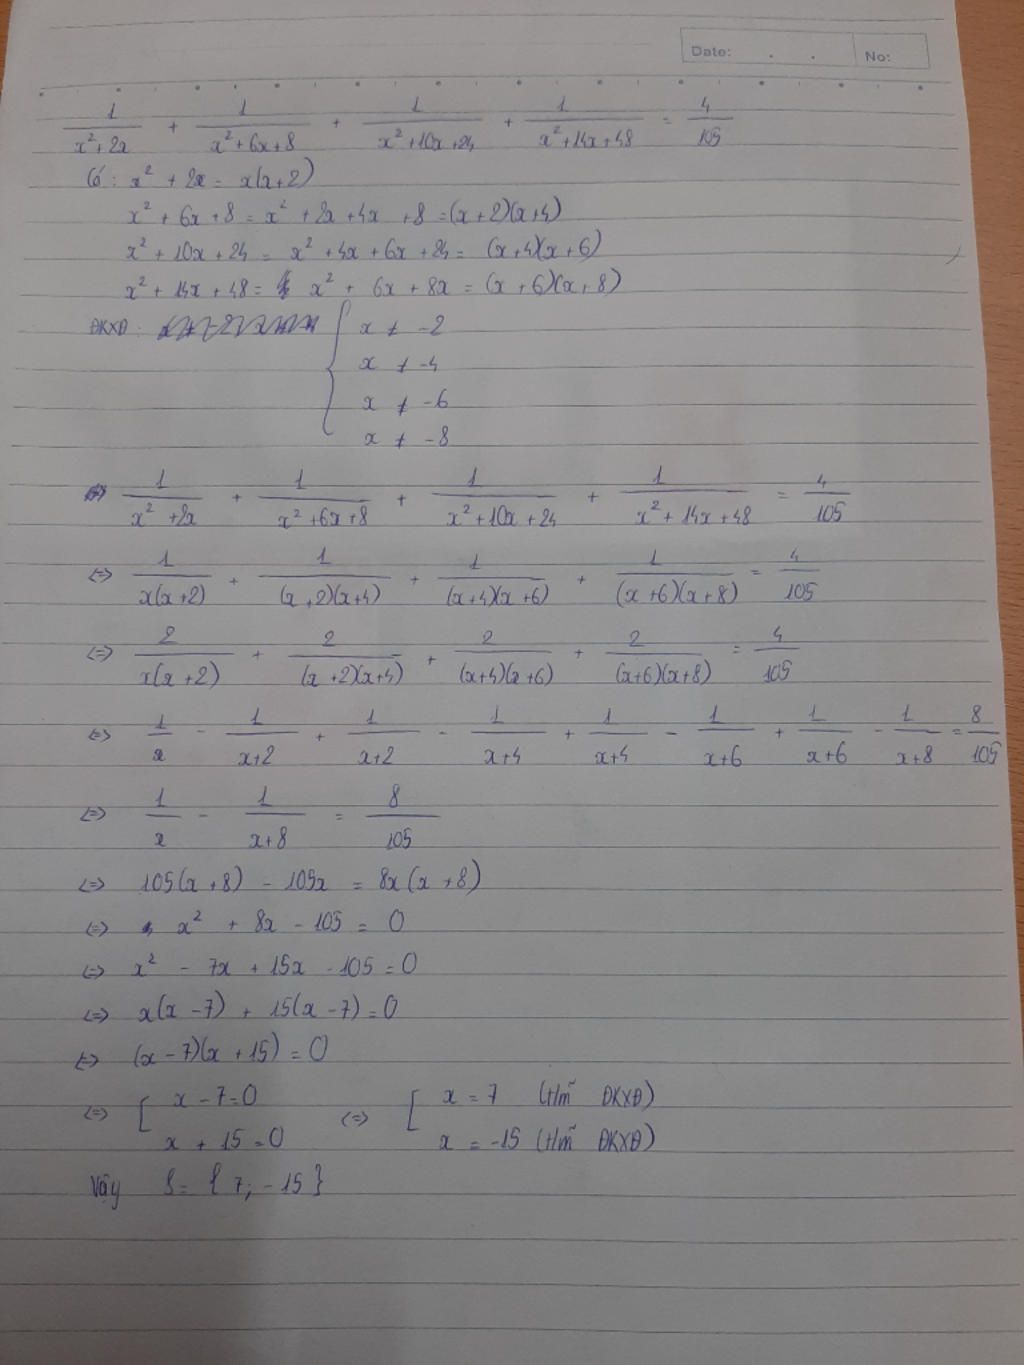 Date: . . No:
1/(x²+2x) + 1/(x²+6x+8) + 1/(x²+10x+24) + 1/(x²+14x+48) = 4/105
Có: x² + 2x = x(x+2)
x² + 6x + 8 = x² + 2x + 4x + 8 = (x+2)(x+4)
x² + 10x + 24 = x² + 4x + 6x + 24 = (x+4)(x+6)
x² + 14x + 48 = x² + 6x + 8x = (x+6)(x+8)
ĐKXĐ: { x ≠ -2
x ≠ -4
x ≠ -6
x ≠ -8
<=> 1/(x²+2x) + 1/(x²+6x+8) + 1/(x²+10x+24) + 1/(x²+14x+48) = 4/105
<=> 1/(x(x+2)) + 1/((x+2)(x+4)) + 1/((x+4)(x+6)) + 1/((x+6)(x+8)) = 4/105
<=> 2/(x(x+2)) + 2/((x+2)(x+4)) + 2/((x+4)(x+6)) + 2/((x+6)(x+8)) = 4/105
<=> 1/x - 1/(x+2) + 1/(x+2) - 1/(x+4) + 1/(x+4) - 1/(x+6) + 1/(x+6) - 1/(x+8) = 8/105
<=> 1/x - 1/(x+8) = 8/105
<=> 105(x+8) - 105x = 8x(x+8)
<=> x² + 8x - 105 = 0
<=> x² - 7x + 15x - 105 = 0
<=> x(x-7) + 15(x-7) = 0
<=> (x-7)(x+15) = 0
<=> [ x-7=0 <=> [ x = 7 (t/m ĐKXĐ)
x+15=0 x = -15 (t/m ĐKXĐ)
Vậy S = {7; -15}